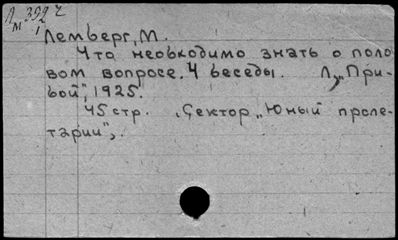 Л 392 ч
М 1
Лемберг, М.
Что необходимо знать о поло
вом вопросе. 4 беседы. Л., „При-
бой", 1925.
45 стр. (Сектор „Юный проле-
тарий",.